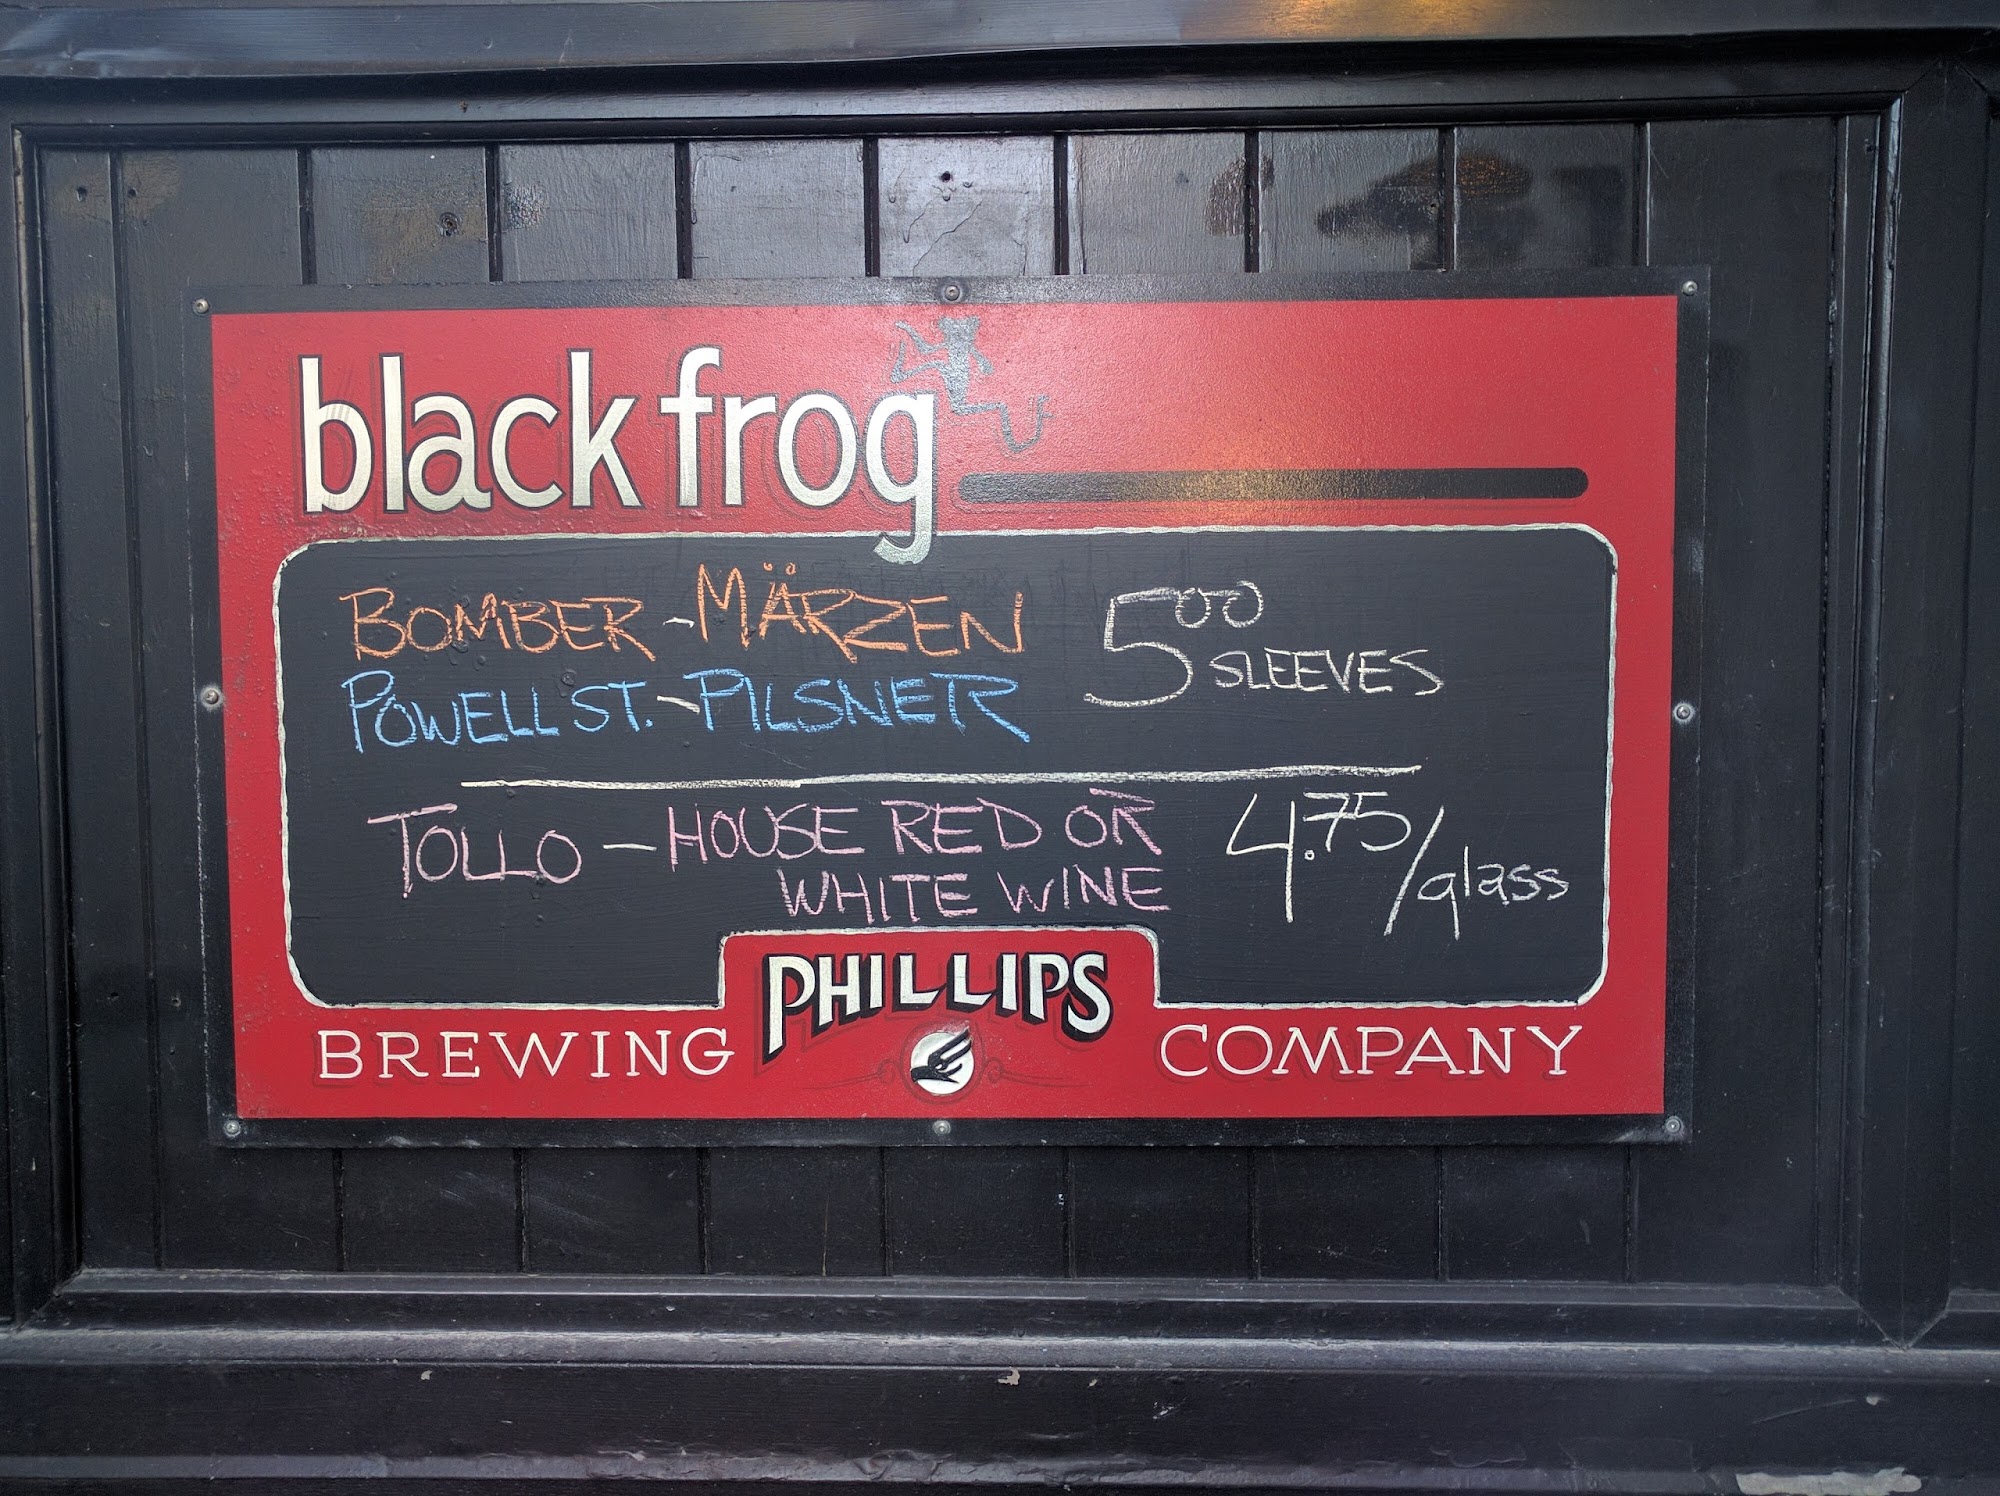 black frog
BOMBER - MÄRZEN 5.00 SLEEVES
POWELL ST. - PILSNER
TOLLO - HOUSE RED OR 4.75/glass
WHITE WINE
BREWING PHILLIPS COMPANY